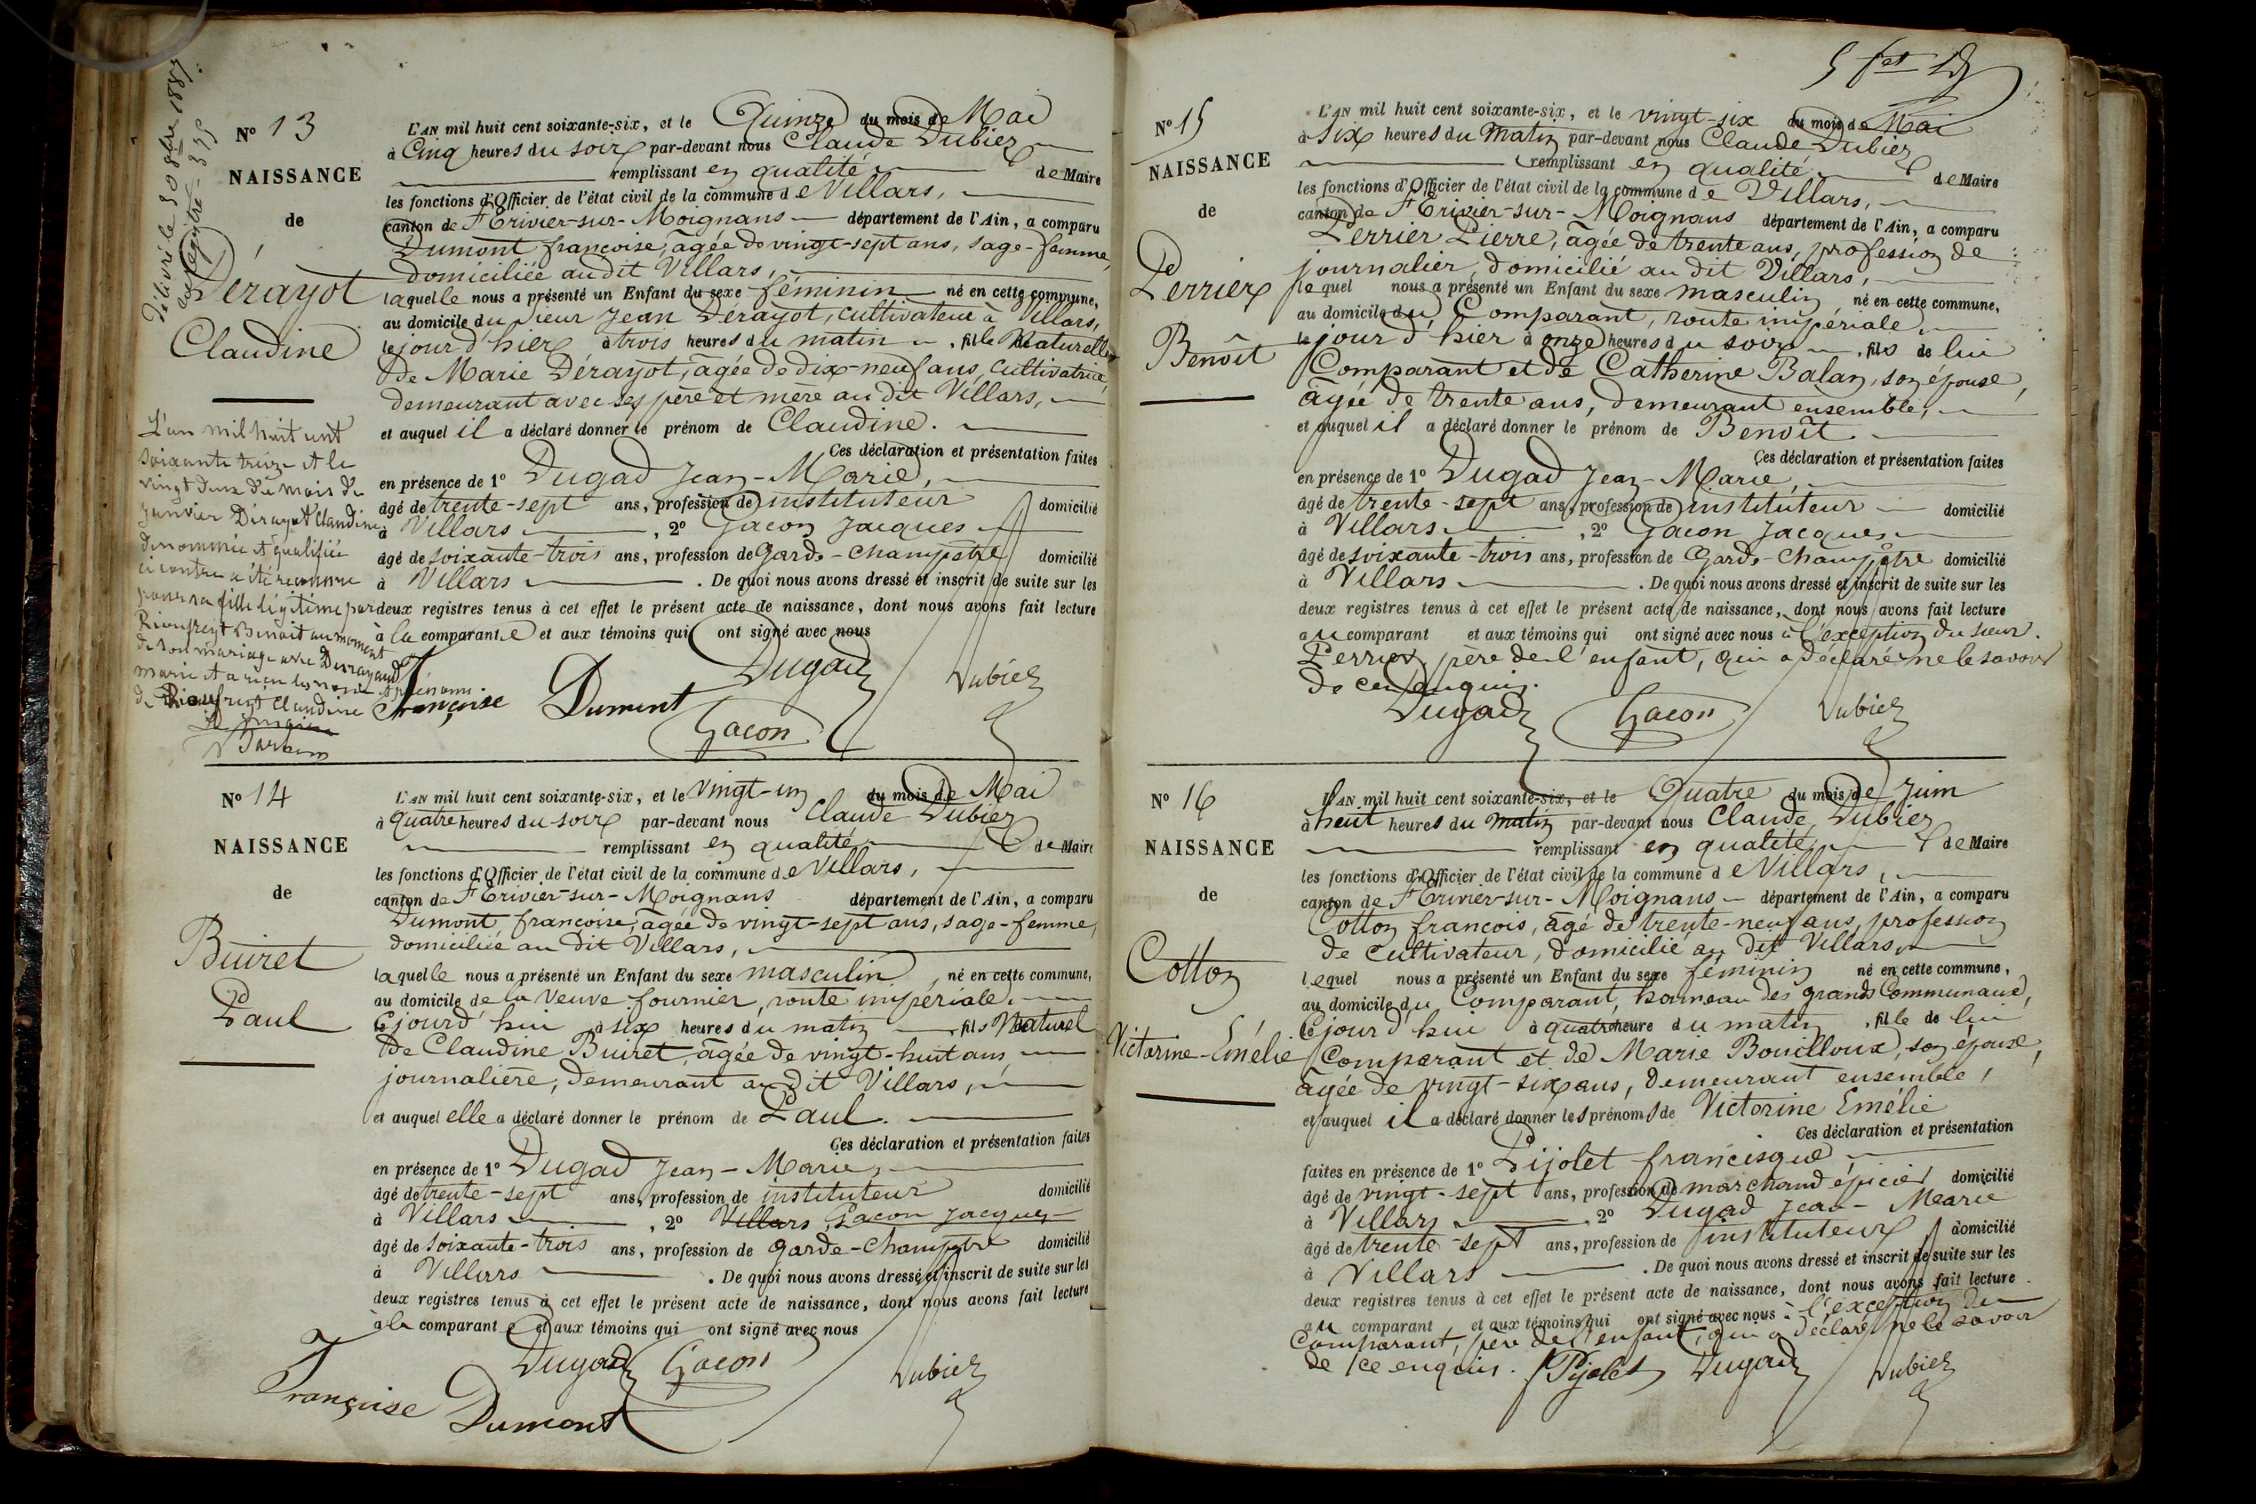 Délivré le 30 8bre 1887
N° 13
NAISSANCE
de
Dérayot
Claudine
L'an mil huit cent
soixante treize et le
vingt deux du mois de
janvier Dérayot Claudine
dénommée et qualifiée
ci contre a été reconnue
pour sa fille légitime par
Rioufreyt Benoit au moment
de son mariage avec Derayaud
marie et a reçu les noms et prénoms
de Rioufreyt Claudine
L'AN mil huit cent soixante-six, et le Quinze du mois de Mai
à Cinq heures du soir par-devant nous Claude Dubiez
remplissant en qualité de Maire
les fonctions d'Officier de l'état civil de la commune de Villars,
canton de St Trivier-sur-Moignans département de l'Ain, a comparu
Dumont françoise, agée de vingt-sept ans, sage-femme,
domiciliée au dit Villars,
laquelle nous a présenté un Enfant du sexe féminin né en cette commune,
au domicile du sieur Jean Dérayot, cultivateur à Villars,
le jour d'hier à trois heures du matin, fille Naturelle
de Marie Dérayot, agée de dix-neuf ans, cultivatrice,
demeurant avec ses père et mère au dit Villars,
et auquel il a déclaré donner le prénom de Claudine.
Ces déclaration et présentation faites
en présence de 1° Dugad Jean-Marie,
âgé de trente-sept ans, profession de instituteur domicilié
à Villars, 2° Gacon Jacques
âgé de soixante-trois ans, profession de Garde-champêtre domicilié
à Villars. De quoi nous avons dressé et inscrit de suite sur les
deux registres tenus à cet effet le présent acte de naissance, dont nous avons fait lecture
à la comparante et aux témoins qui ont signé avec nous
Dugad Dubiez
Françoise Dumont
Gacon
N° 14
NAISSANCE
de
Buiret
Paul
L'AN mil huit cent soixante-six, et le vingt-un du mois de Mai
à quatre heures du soir par-devant nous Claude Dubiez
remplissant en qualité de Maire
les fonctions d'Officier de l'état civil de la commune de Villars,
canton de St Trivier-sur-Moignans département de l'Ain, a comparu
Dumont françoise, agée de vingt-sept ans, sage-femme,
domiciliée au dit Villars,
laquelle nous a présenté un Enfant du sexe masculin, né en cette commune,
au domicile de la veuve fournier, route impériale,
cejourd'hui à six heures du matin, fils Naturel
de Claudine Buiret, agée de vingt-huit ans,
journalière, demeurant au dit Villars,
et auquel elle a déclaré donner le prénom de Paul.
Ces déclaration et présentation faites
en présence de 1° Dugad Jean-Marie,
âgé de trente-sept ans, profession de instituteur domicilié
à Villars, 2° Villars, Gacon Jacques
âgé de soixante-trois ans, profession de garde-champêtre domicilié
à Villars. De quoi nous avons dressé et inscrit de suite sur les
deux registres tenus à cet effet le présent acte de naissance, dont nous avons fait lecture
à la comparante et aux témoins qui ont signé avec nous
Dugad Gacon Dubiez
Françoise Dumont
N° 15
NAISSANCE
de
Perrier
Benoît
L'AN mil huit cent soixante-six, et le vingt-six du mois de Mai
à six heures du matin par-devant nous Claude Dubiez
remplissant en qualité de Maire
les fonctions d'Officier de l'état civil de la commune de Villars,
canton de St Trivier-sur-Moignans département de l'Ain, a comparu
Perrier Pierre, agée de trente ans, profession de
journalier, domicilié au dit Villars,
lequel nous a présenté un Enfant du sexe masculin né en cette commune,
au domicile du Comparant, route impériale,
le jour d'hier à onze heures du soir, fils de lui
Comparant et de Catherine Balan, son épouse,
agée de trente ans, demeurant ensemble,
et auquel il a déclaré donner le prénom de Benoît
Ces déclaration et présentation faites
en présence de 1° Dugad Jean-Marie,
âgé de trente-sept ans, profession de instituteur domicilié
à Villars, 2° Gacon Jacques
âgé de soixante-trois ans, profession de Garde-Champêtre domicilié
à Villars. De quoi nous avons dressé et inscrit de suite sur les
deux registres tenus à cet effet le présent acte de naissance, dont nous avons fait lecture
au comparant et aux témoins qui ont signé avec nous à l'exception du sieur
Perrier, père de l'enfant, qui a déclaré ne le savoir
de ce enquis.
Dugad Gacon Dubiez
N° 16
NAISSANCE
de
Cotton
Victorine-Emélie
L'AN mil huit cent soixante-six, et le Quatre du mois de Juin
à huit heures du matin par-devant nous Claude Dubiez
remplissant en qualité de Maire
les fonctions d'Officier de l'état civil de la commune de Villars,
canton de St Trivier-sur-Moignans département de l'Ain, a comparu
Cotton françois, agé de trente-neuf ans, profession
de cultivateur, domicilié au dit Villars,
lequel nous a présenté un Enfant du sexe féminin né en cette commune,
au domicile du Comparant, hameau des grands Communaux,
cejourd'hui à quatre heure du matin, fille de lui
Comparant et de Marie Bouilloux, son épouse,
agée de vingt-six ans, demeurant ensemble,
et auquel il a déclaré donner les prénoms de Victorine Emélie
Ces déclaration et présentation
faites en présence de 1° Pijolet francisque
âgé de vingt-sept ans, profession de marchand épicier domicilié
à Villars, 2° Dugad Jean-Marie
âgé de trente-sept ans, profession de instituteur domicilié
à Villars. De quoi nous avons dressé et inscrit de suite sur les
deux registres tenus à cet effet le présent acte de naissance, dont nous avons fait lecture
au comparant et aux témoins qui ont signé avec nous à l'exception du
Comparant, père de l'enfant, qui a déclaré ne le savoir
de ce enquis. Pijolet Dugad Dubiez